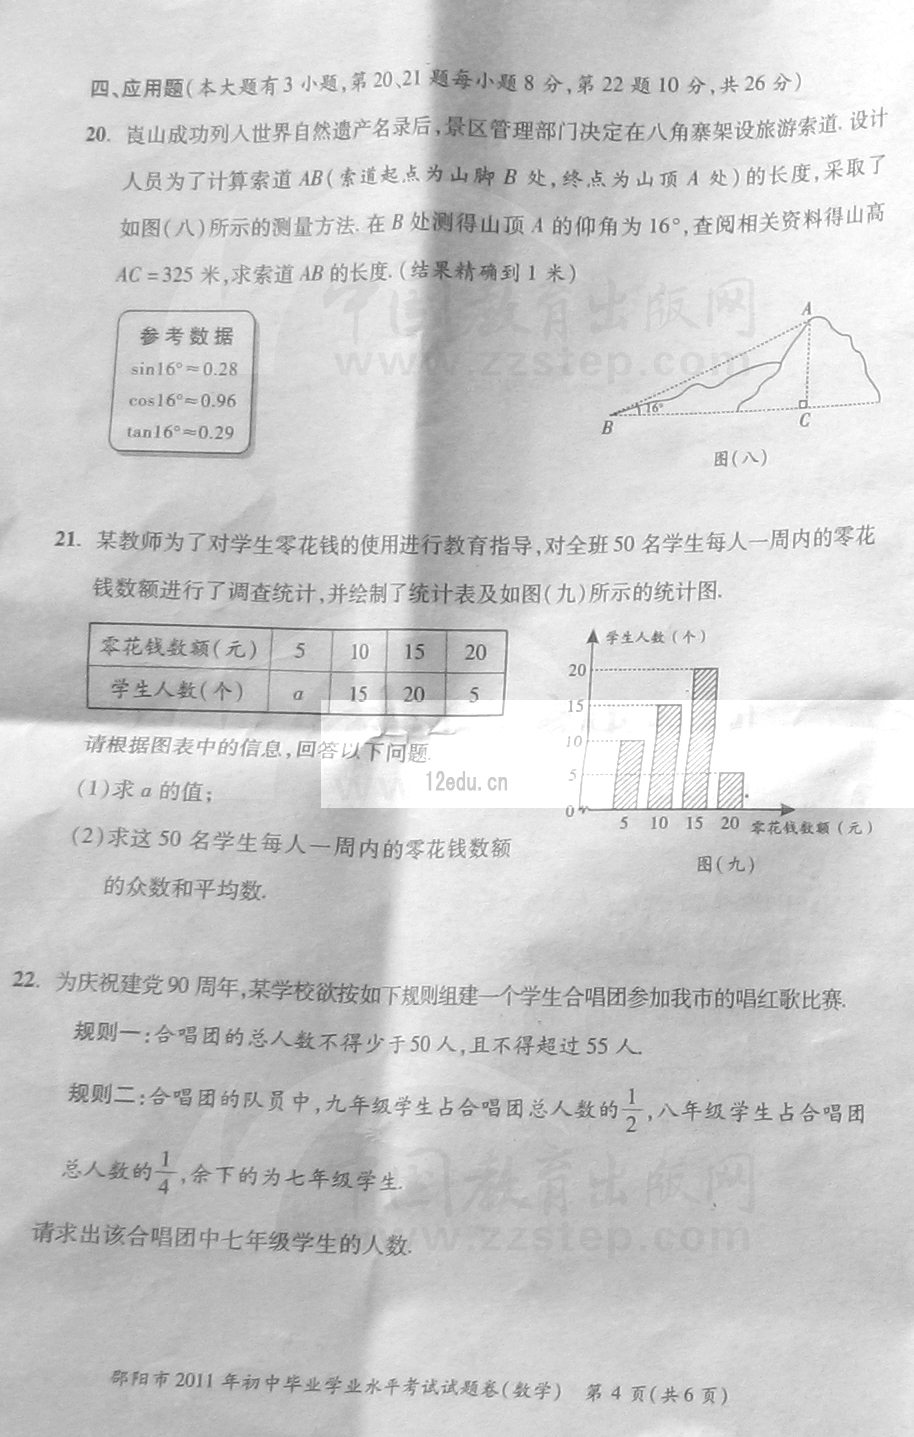 四、应用题(本大题有3小题,第20、21题每小题8分,第22题10分,共26分)
20. 崀山成功列入世界自然遗产名录后,景区管理部门决定在八角寨架设旅游索道.设计
人员为了计算索道AB(索道起点为山脚B处,终点为山顶A处)的长度,采取了
如图(八)所示的测量方法.在B处测得山顶A的仰角为16°,查阅相关资料得山高
AC=325米,求索道AB的长度.(结果精确到1米)
中国教育出版网
www.zzstep.com
参考数据
sin16°≈0.28
cos16°≈0.96
tan16°≈0.29
A
B
16°
C
图(八)
21. 某教师为了对学生零花钱的使用进行教育指导,对全班50名学生每人一周内的零花
钱数额进行了调查统计,并绘制了统计表及如图(九)所示的统计图.
零花钱数额(元) 5 10 15 20
学生人数(个) a 15 20 5
请根据图表中的信息,回答以下问题.
(1)求a的值;
(2)求这50名学生每人一周内的零花钱数额
的众数和平均数.
12edu.cn
学生人数(个)
20
15
10
5
0
5 10 15 20 零花钱数额(元)
图(九)
22. 为庆祝建党90周年,某学校欲按如下规则组建一个学生合唱团参加我市的唱红歌比赛.
规则一:合唱团的总人数不得少于50人,且不得超过55人.
规则二:合唱团的队员中,九年级学生占合唱团总人数的1/2,八年级学生占合唱团
总人数的1/4,余下的为七年级学生.
请求出该合唱团中七年级学生的人数.
中国教育出版网
www.zzstep.com
邵阳市2011年初中毕业学业水平考试试题卷(数学) 第4页(共6页)